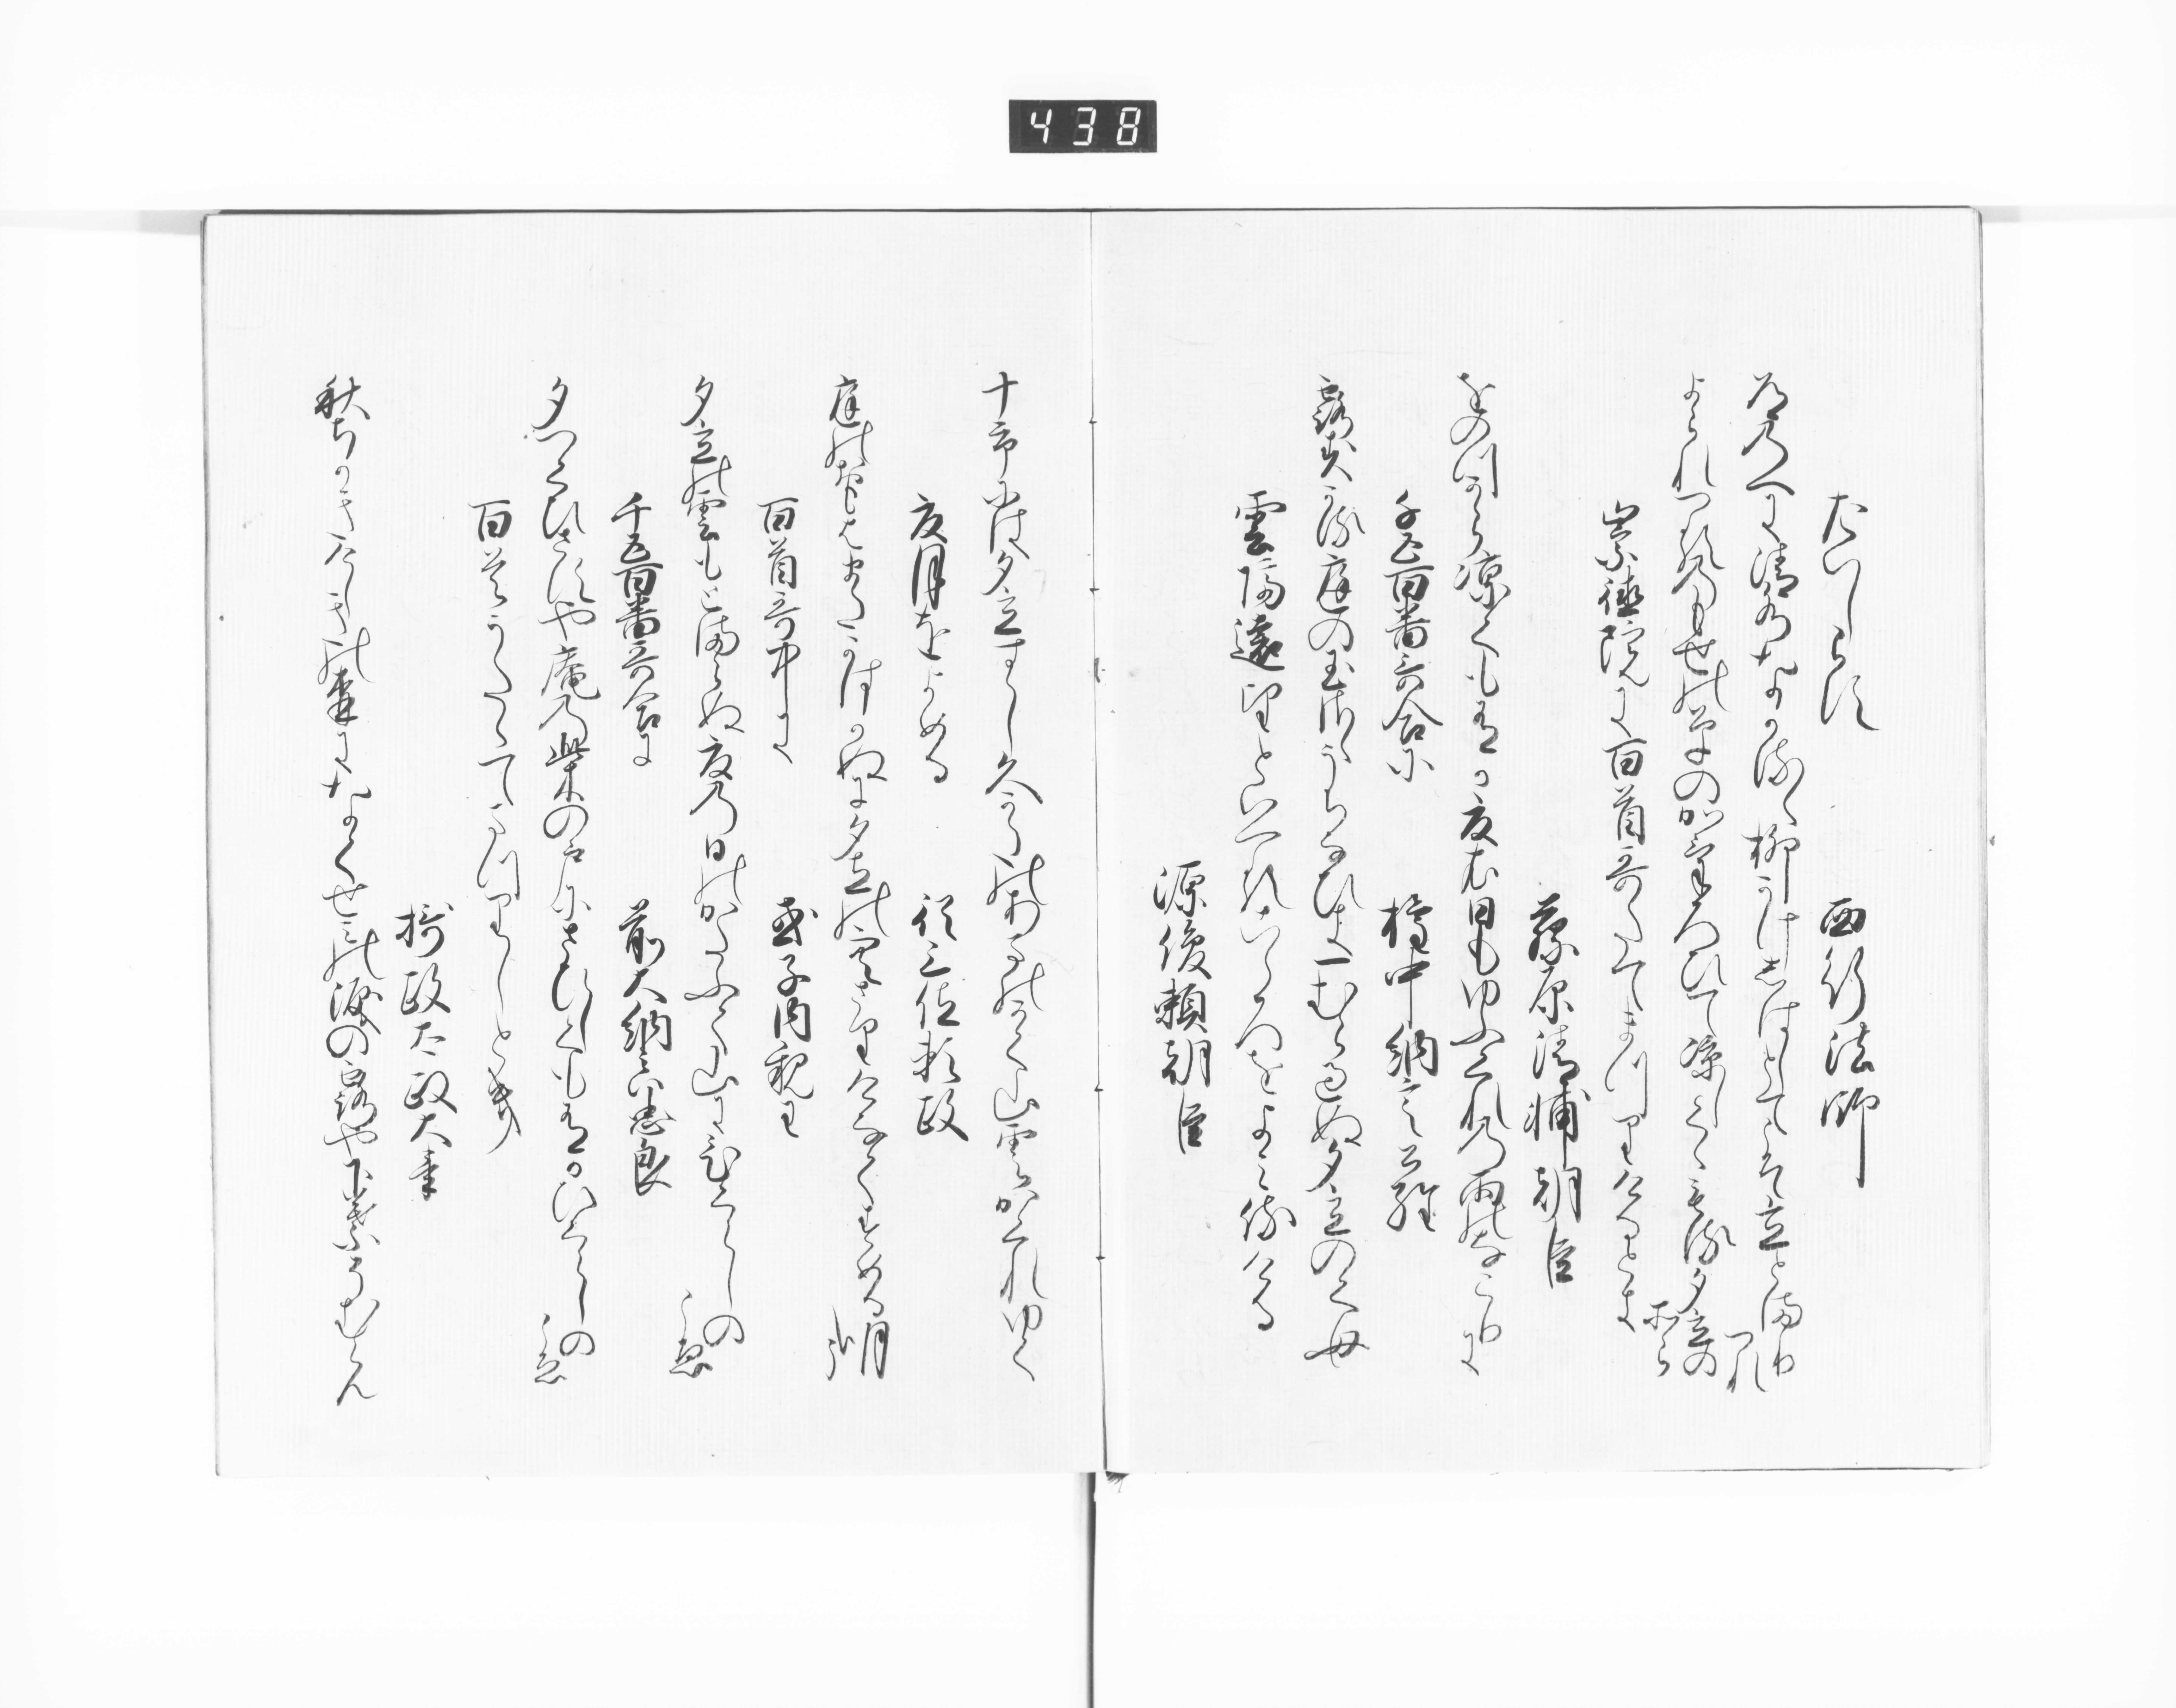 438
たいしらす　西行法師
道のへに清水なかるゝ柳かけしはしとてこそ立とまりつれ
よられつる野もせの草のかけろひて涼しくくもる夕立のそら
崇徳院に百首哥たてまつりけるとき
藤原清輔朝臣
をのつから涼しくもあるか夏衣日もゆふくれの雨のなこりに
千五百番哥合に　権中納言公経
露すかる庭の玉さゝうちなひきひとむら過ぬ夕立のくも
雲隔遠望といへるこゝろをよみ侍ける
源俊頼朝臣
十市には夕立すらし久かたの天のかく山雲かくれゆく
夏月をよめる　従三位頼政
庭のおもはまたかはかぬに夕立の空さりけなくすめる月哉
百首哥中に　式子内親王
夕立の雲もとまらぬ夏の日のかたふく山にひくらしのこゑ
千五百番哥合に　前大納言忠良
夕つくひさすや庵の柴の戸にさひしくもあるかひくらしのこゑ
百首うたたてまつりしとき
摂政太政大臣
秋ちかきけしきの森になくせみの涙の露や下葉そむらん